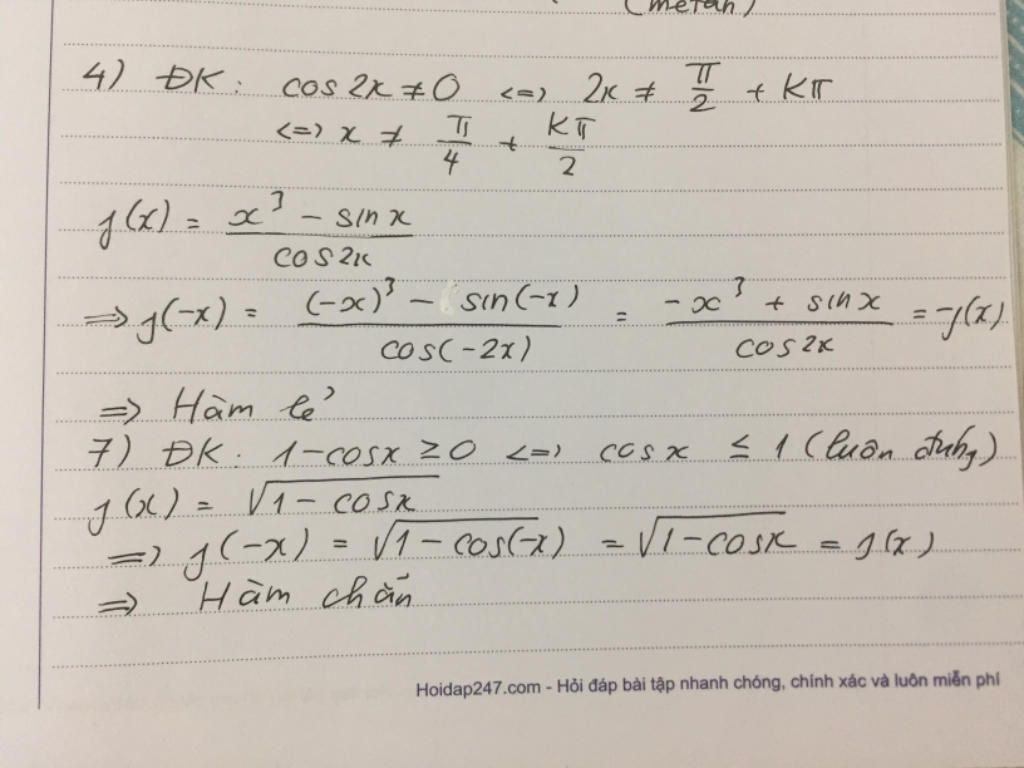 (metan)
4) ĐK: cos2x ≠ 0 <=> 2x ≠ π/2 + Kπ
<=> x ≠ π/4 + Kπ/2
y(x) = (x³ - sinx)/(cos2x)
=> y(-x) = ((-x)³ - sin(-x))/(cos(-2x)) = (-x³ + sinx)/(cos2x) = -y(x)
=> Hàm lẻ
7) ĐK: 1-cosx ≥ 0 <=> cosx ≤ 1 (luôn đúng)
y(x) = √(1 - cosx)
=> y(-x) = √(1-cos(-x)) = √(1-cosx) = y(x)
=> Hàm chẵn
Hoidap247.com - Hỏi đáp bài tập nhanh chóng, chính xác và luôn miễn phí